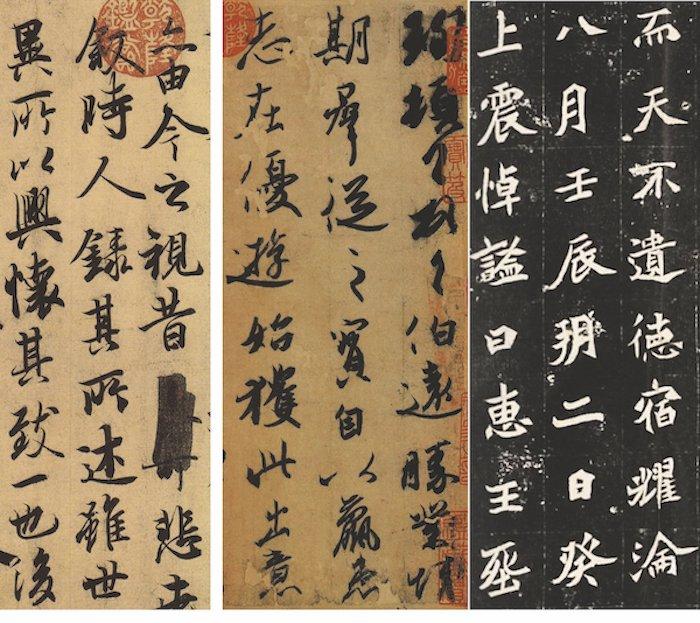 而天不遺德宿耀淪
八月壬辰朔二日癸
上震悼謚曰惠王
珣頓首頓首伯遠勝業情
期群從之寶自以羸患
志在優遊始獲此出意
亦由今之視昔悲夫
敘時人錄其所述雖世
異所以興懷其致一也後